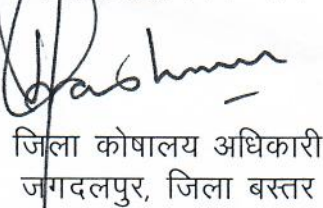 जिला कोषालय अधिकारी
जगदलपुर, जिला बस्तर